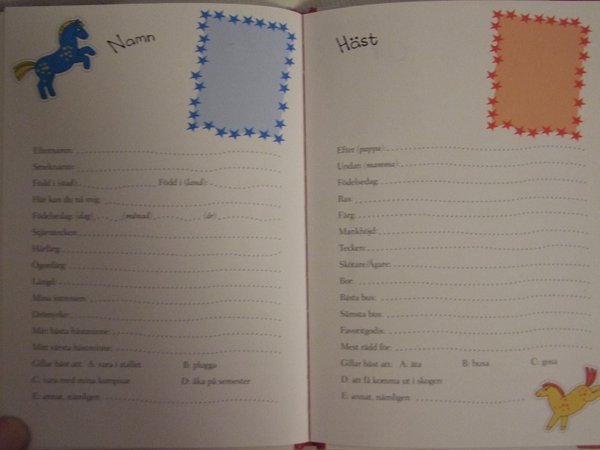 Namn
Efternamn:
Smeknamn:
Född i (stad): Född i (land):
Här kan du nå mig:
Födelsedag: (dag) (månad) (år):
Stjärntecken:
Hårfärg:
Ögonfärg:
Längd:
Mina intressen:
Drömyrke:
Mitt bästa hästminne:
Mitt värsta hästminne:
Gillar bäst att: A: vara i stallet B: plugga
C: vara med mina kompisar D: åka på semester
E: annat, nämligen
Häst
Efter (pappa):
Undan (mamma):
Födelsedag:
Ras:
Färg:
Mankhöjd:
Tecken:
Skötare/Ägare:
Bor:
Bästa bus:
Sämsta bus:
Favoritgodis:
Mest rädd för:
Gillar bäst att: A: äta B: busa C: gosa
D: att få komma ut i skogen
E: annat, nämligen